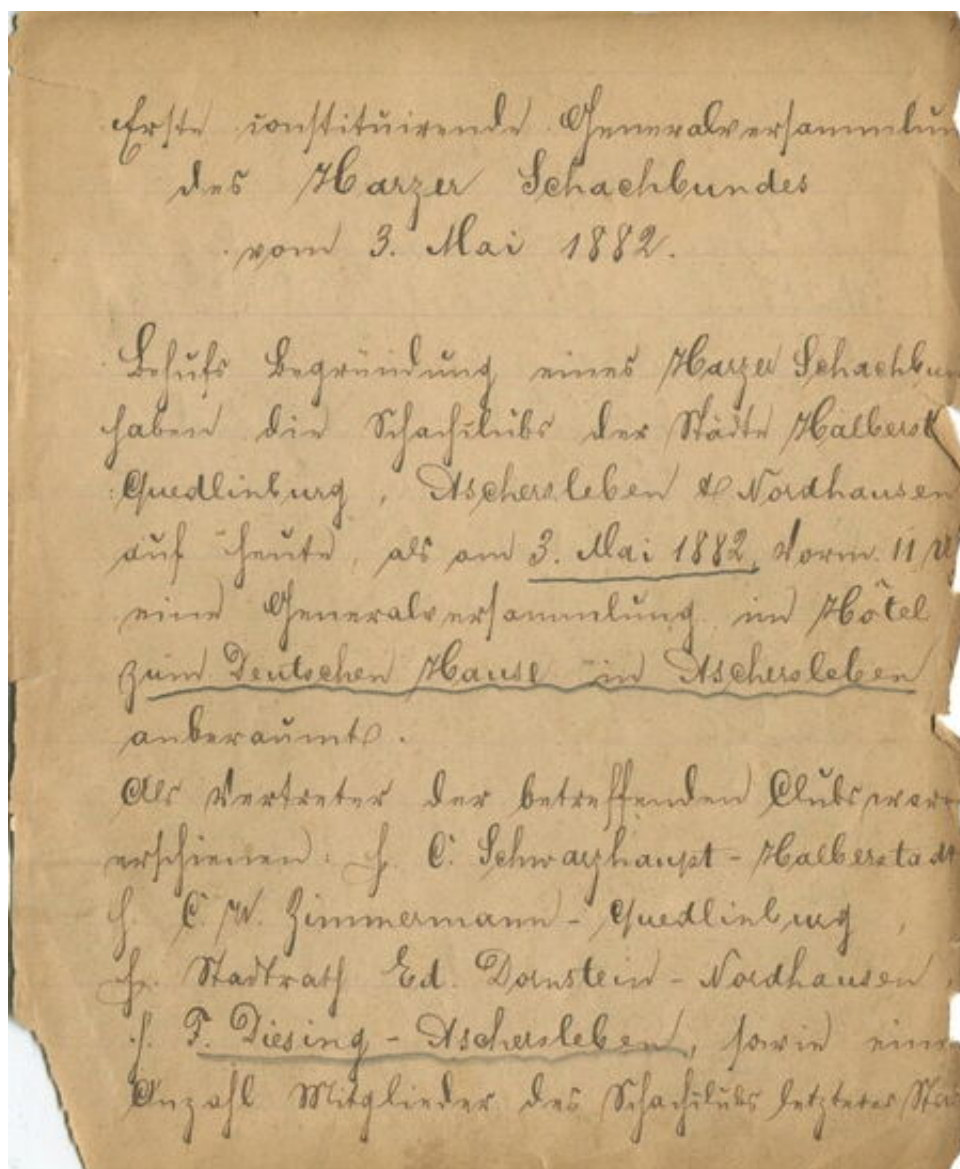 Erste constituirende Generalversammlun
des Harzer Schachbundes
vom 3. Mai 1882.
Behufs Begründung eines Harzer Schachbun
haben die Schachclubs der Städte Halberst
Quedlinburg, Aschersleben & Nordhausen
auf heute, als am 3. Mai 1882, Vorm. 11 U
eine Generalversammlung im Hôtel
zum Deutschen Hause in Aschersleben
anberaumt.
Als Vertreter der betreffenden Clubs ware
erschienen: H. C. Schwarzhaupt - Halberstadt
H. C. W. Zimmermann - Quedlinburg,
Hr. Stadtrath Ed. Dornstein - Nordhausen,
H. F. Diesing - Aschersleben, sowie eine
Anzahl Mitglieder des Schachclubs letzterer Sta